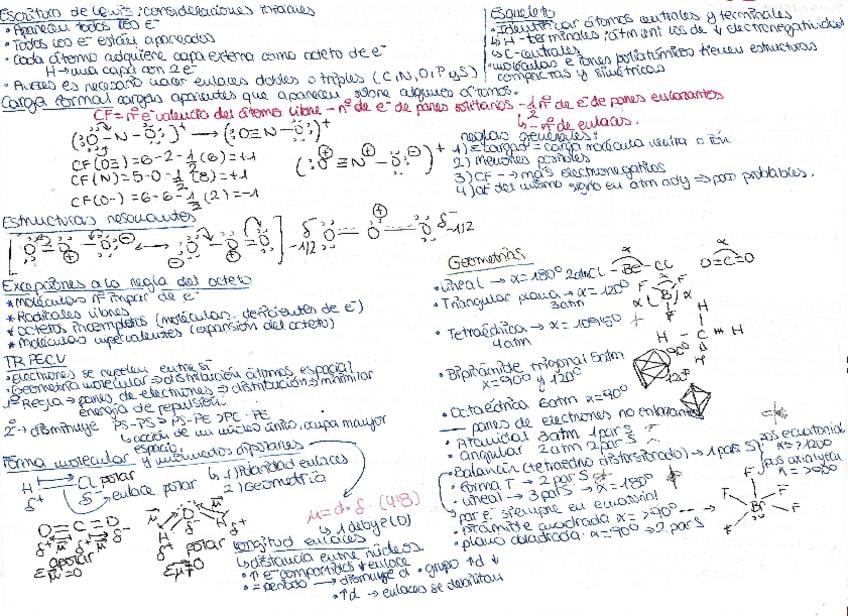 Escritura de Lewis: consideraciones iniciales
• Aparecen todos los e⁻
• Todos los e⁻ están apareados
• Cada átomo adquiere capa externa como octeto de e⁻
H → una capa con 2e⁻
• A veces es necesario hacer enlaces dobles o triples (C, N, O, P y S)
Esqueleto
• Identificar átomos centrales y terminales
↳ H - terminales; átm ant los de ↓ electronegatividad
↳ C - centrales
• moléculas e iones poliatómicos tienen estructuras
compactas y simétricas
Carga formal cargas aparentes que aparecen sobre algunos átomos.
CF = nº e⁻ valencia del átomo libre - nº de e⁻ de pares solitarios - 1/2 nº de e⁻ de pares enlazantes
↳ - nº de enlaces.
(:O-N-O:)⁺ → (:O≡N-O:)⁺
CF(O≡) = 6-2-1/2(6) = +1
CF(N) = 5-0-1/2(8) = +1
CF(O-) = 6-6-1/2(2) = -1
(:O⊕≡N⊕-O⊖:)⁺
reglas generales:
1) Σ cargas = carga molécula neutra o ión
2) Menores posibles
3) CF - → más electronegativos
4) CF del mismo signo en átm ady ⇒ poco probables.
Estructuras resonantes
[O=O⊕-O⊖ ↔ O⊖-O⊕=O]
δ⁻ -1/2 O=O⊕=O δ⁻ -1/2
Excepciones a la regla del octeto
* moléculas nº impar de e⁻
* Radicales libres
* octetos incompletos (moléculas deficientes de e⁻)
* moléculas hipervalentes (expansión del octeto)
TRPECV
• electrones se repelen entre sí
• Geometría molecular → distribución átomos espacial
1ª Regla → pares de electrones → distribución → minimizar
energía de repulsión.
2ª → disminuye PS-PS > PS-PE > PE-PE
↳ acción de un núcleo único, ocupa mayor
espacio.
Forma molecular y momentos dipolares
H → Cl polar
δ⁺ δ⁻ ↳ enlace polar
↳ 1) Polaridad enlaces
2) Geometría
μ = d·δ (4'8)
↳ 1 debye (D)
O=C=O
δ⁻ μ δ⁺ μ δ⁻
apolar
Σμ=0
μ O μ
H H
δ⁺ δ⁺
polar
Σμ≠0
Longitud enlaces
↳ distancia entre núcleos
• ↑ e⁻ compartidos ↓ enlace
• = periodo → disminuye d • grupo ↑d ↓
• ↑d → enlaces se debilitan
Geometrías
• Lineal → α=180º 2átm Cl-Be-Cl O=C=O
• Triangular plana → α=120º
3átm
F F B F α α
• Tetraédrica → α=109'50
4átm
H H C H H
• Bipirámide trigonal 5átm
α=90º y 120º
90º
120º
• Octaédrica 6átm α=90º
— pares de electrones no enlazantes
• Piramidal 3átm 1par S
• angular 2átm 2par S
• Balancín (tetraedro distorsionado) → 1par S
pos ecuatorial
α=>120º
pos axial
α=>90º
• forma T → 2par S
• Lineal → 3par S → α=180º
par e⁻ siempre en ecuatorial
• pirámide cuadrada α=>90º
• plano cuadrada α=90º → 2par S
F F F Br F F